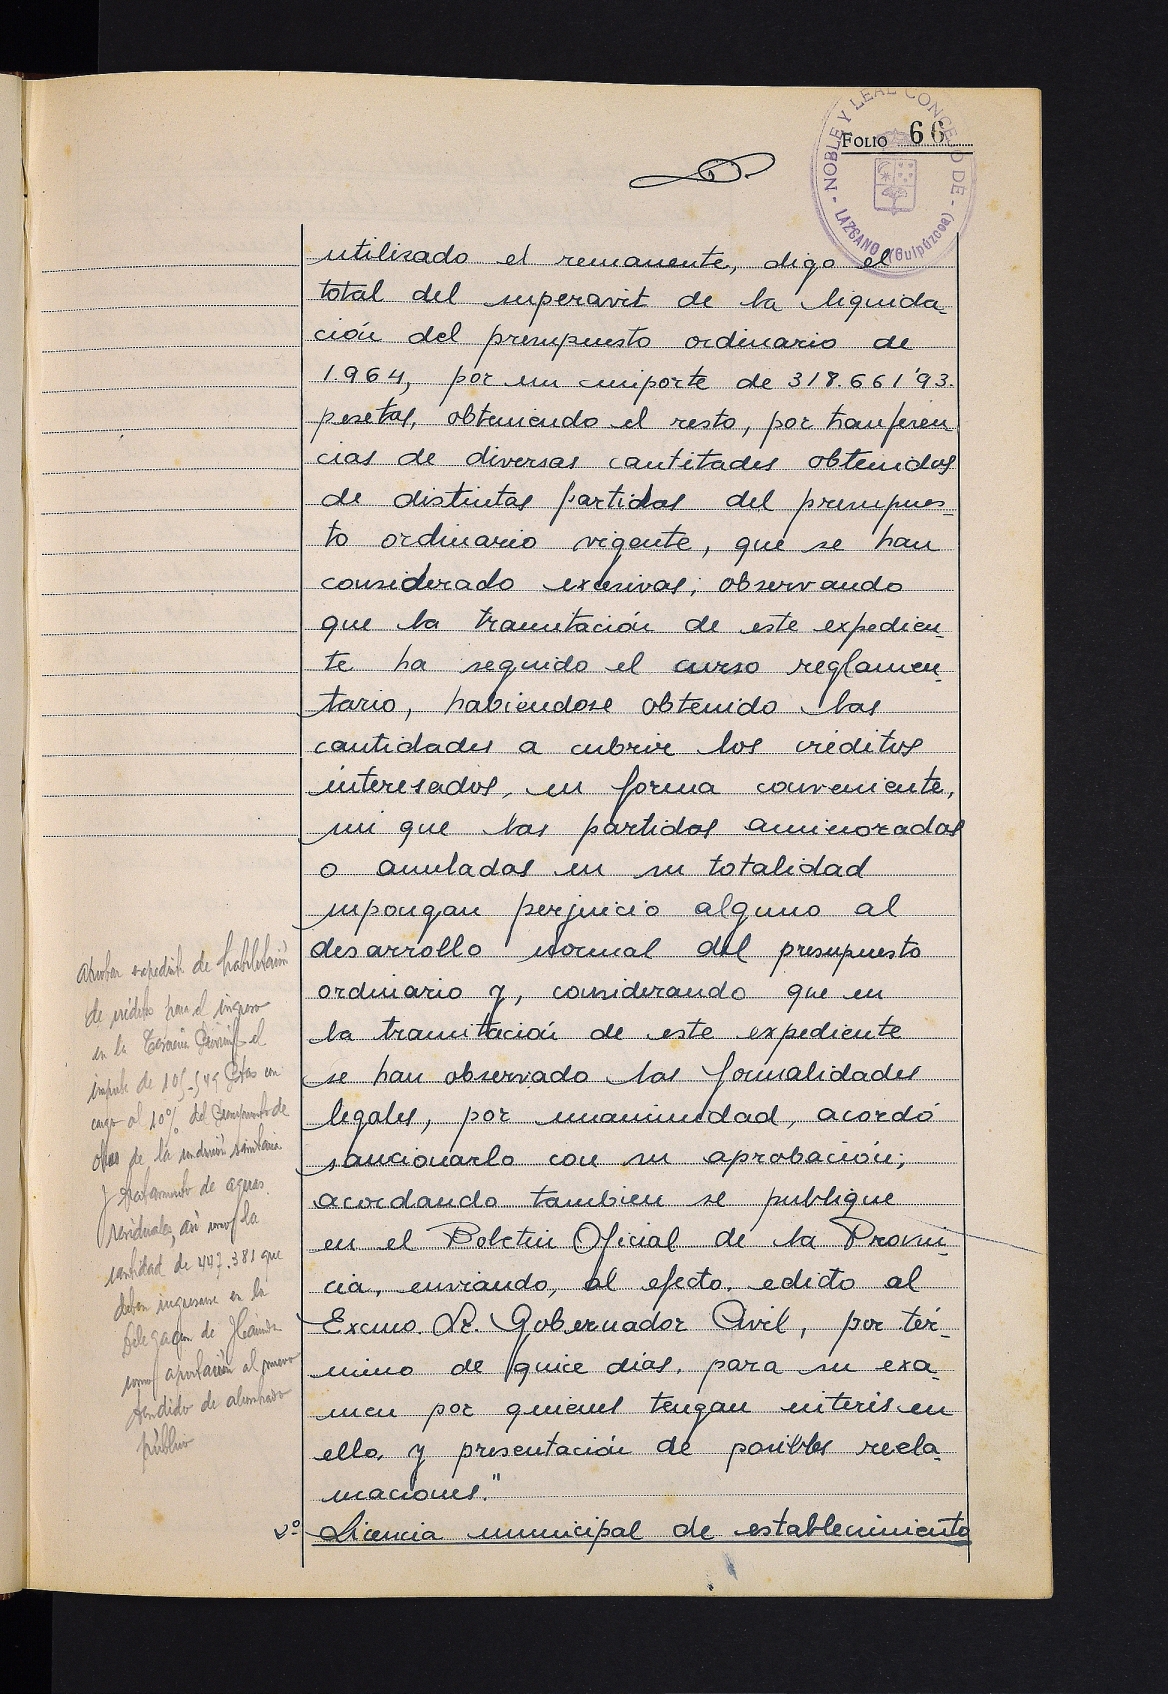 NOBLE Y LEAL CONCEJO DE - LAZCANO (Guipúzcoa)
FOLIO 66
utilizado el remanente, digo el
total del superavit de la liquida-
ción del presupuesto ordinario de
1.964, por un importe de 318.661'93.
pesetas, obteniendo el resto, por tranferen
cias de diversas cantitades obtenidas
de distintas partidas del presupues-
to ordinario vigente, que se han
considerado exesivas; observando
que la tramitación de este expedien-
te ha seguido el curso reglamen-
tario, habiendose obtenido las
cantidades a cubrir los créditos
interesados, en forma conveniente,
sin que las partidas aminoradas
o anuladas en su totalidad
supongan perjuicio alguno al
desarrollo normal del presupuesto
ordinario y, considerando que en
la tramitación de este expediente
se han observado las formalidades
legales, por unanimidad, acordó
sancionarlo con su aprobación;
acordando tambien se publique
en el Boletin Oficial de la Provin-
cia, enviando, al efecto, edicto al
Excmo. Sr. Gobernador Civil, por tér-
mino de quice dias, para su exa-
men por quienes tengan interés en
ello, y presentación de posibles recla-
maciones."
2º Licencia municipal de establecimiento
Aprobar expediente de habilitación
de créditos para el ingreso
en la Tesorería el
importe de 105.549 Ptas con
cargo al 10% del Presupuesto de
obras de la sanitaria
y tratamiento de aguas
residuales, así como la
cantidad de 447.381 que
deben ingresarse en la
Delegación de Hacienda
como aportación al nuevo
tendido de alumbrado
público